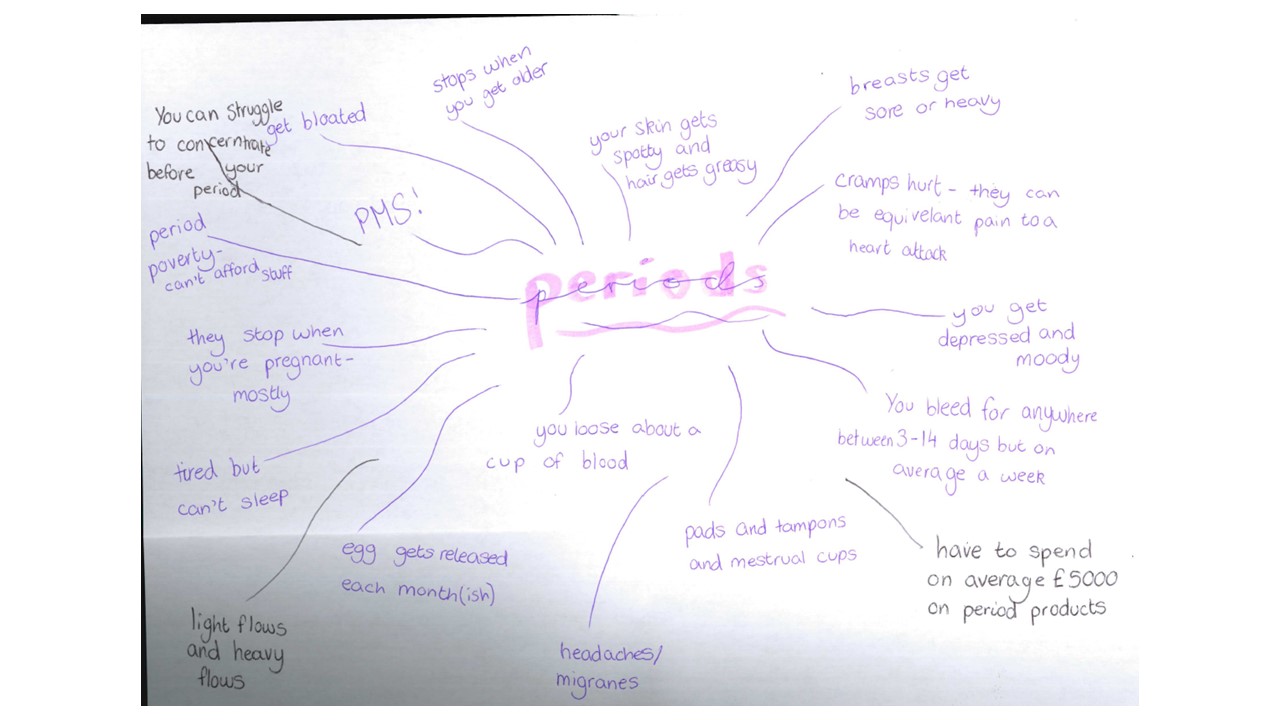 periods
stops when
you get older
your skin gets
spotty and
hair gets greasy
breasts get
sore or heavy
cramps hurt - they can
be equivelant pain to a
heart attack
you get
depressed and
moody
You bleed for anywhere
between 3-14 days but on
average a week
have to spend
on average £5000
on period products
pads and tampons
and mestrual cups
you loose about a
cup of blood
headaches/
migranes
egg gets released
each month(ish)
light flows
and heavy
flows
tired but
can't sleep
they stop when
you're pregnant -
mostly
period
poverty -
can't afford stuff
PMS!
You can struggle
to concerntrate
before your
period
get bloated